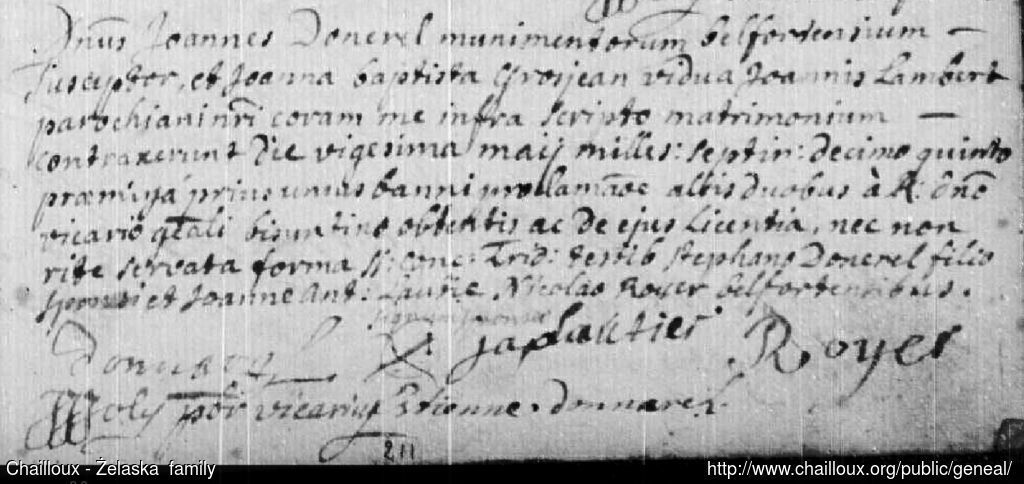 Dnus Joannes Donerel munimentorum belfortensium —
susceptor, et Joanna baptista Grosjean vidua Joannis Lambert
parochiani nri coram me infra scripto matrimonium —
contraxerunt Die vigesima maij milles: septin: decimo quinto
præmissa prius unius banni proclamaoe aliis duobus à R: dno
vicario gnali bisuntino obtentis ac De ejus Licentia, nec non
rite servata forma ss: Conc: Trid: testib stephano Donerel filio
sponsi et Joanne Ant: Nicolao Royer belfortensibus.
japlautier Royer
Joly pbr vicarius Etienne donnarel
211
Chailloux - Żelaska family
http://www.chailloux.org/public/geneal/